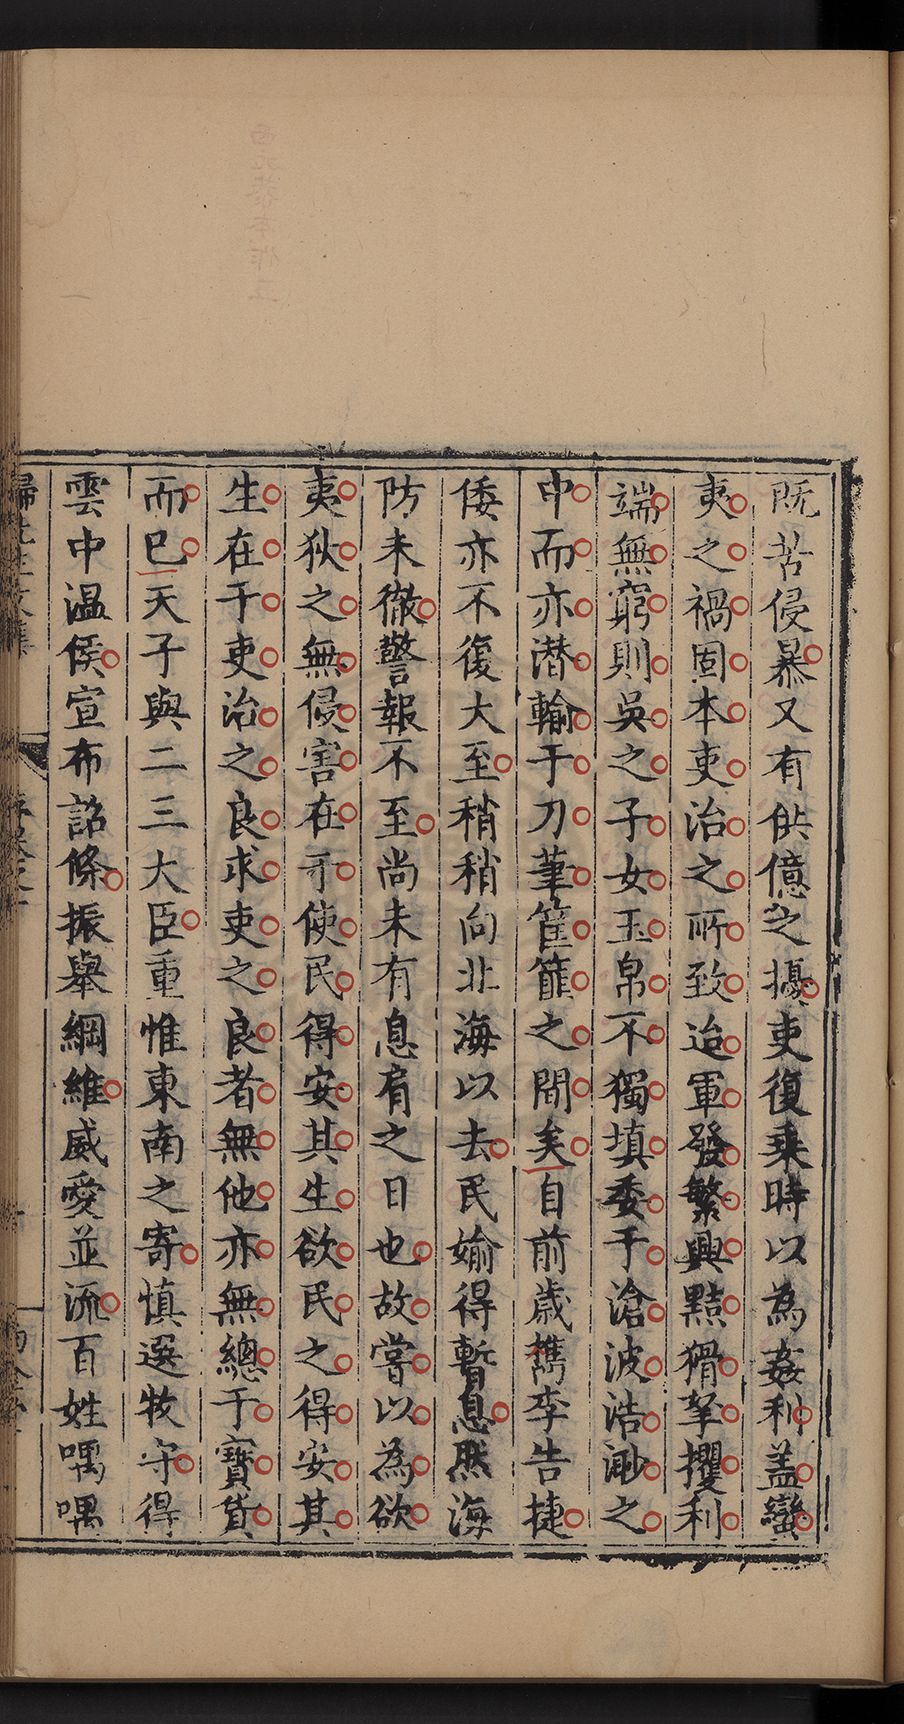 既苦侵暴又有供億之擾吏復乗時以為姦利盖蠻
夷之禍固本吏治之所致迨軍發繁興黠猾挐攫利
端無窮則吳之子女玉帛不獨填委于滄波浩渺之
中而亦潜輸于刀筆筐篚之間矣自前歲檇李告捷
倭亦不復大至稍稍向北海以去民婾得暫息然海
防未徹警報不至尚未有息肩之日也故嘗以為欲
夷狄之無侵害在乎使民得安其生欲民之得安其
生在于吏治之良求吏之良者無他亦無總于寳貨
而已天子與二三大臣重惟東南之寄慎選牧守得
雲中温侯宣布詔條振舉綱維威愛並流百姓喁喁